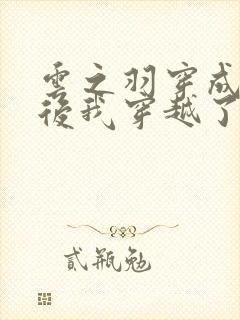 雲之羽穿成
後我穿越了
貳瓶勉